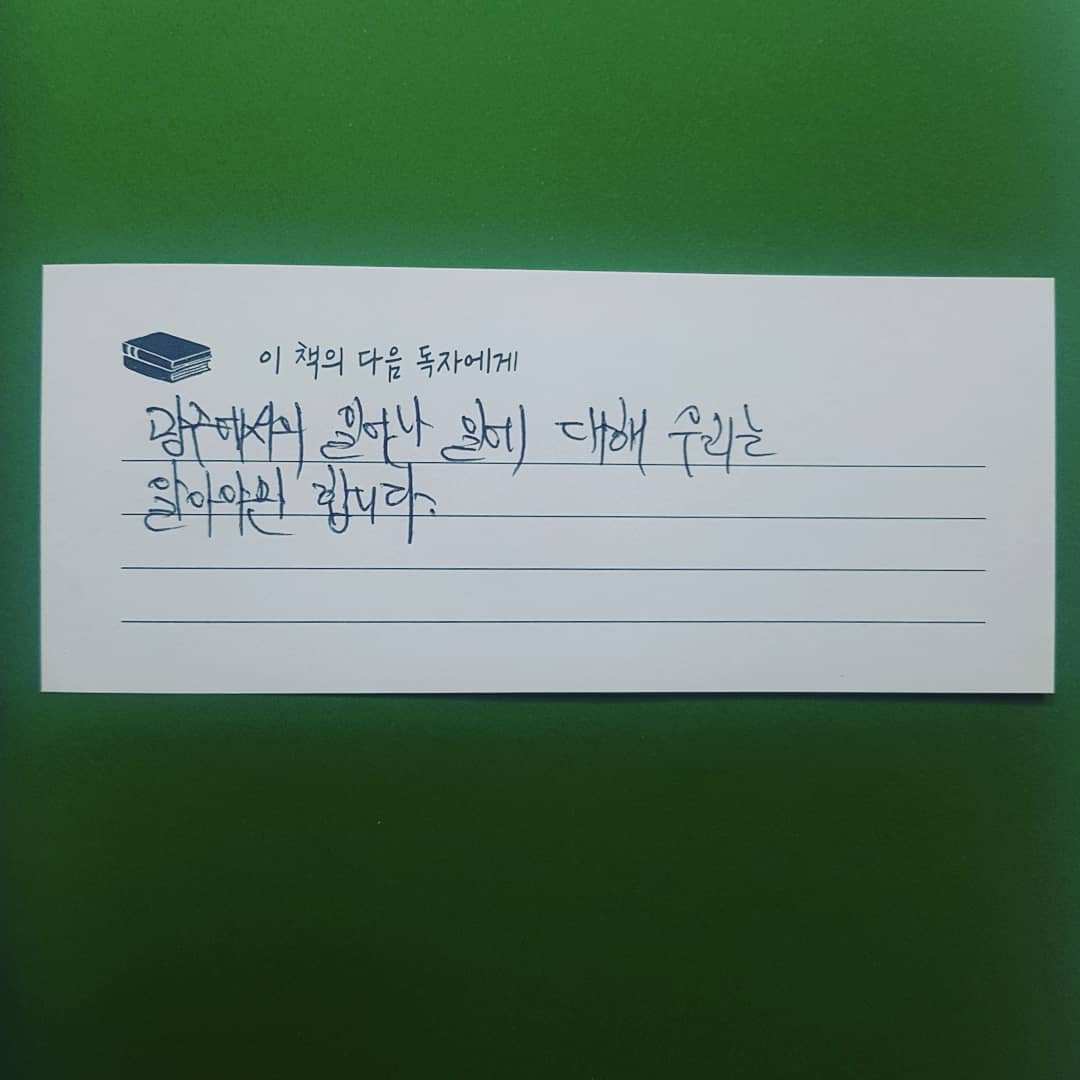 이 책의 다음 독자에게
광주에서의 일어나 일에 대해 우리는
알아야만 합니다.